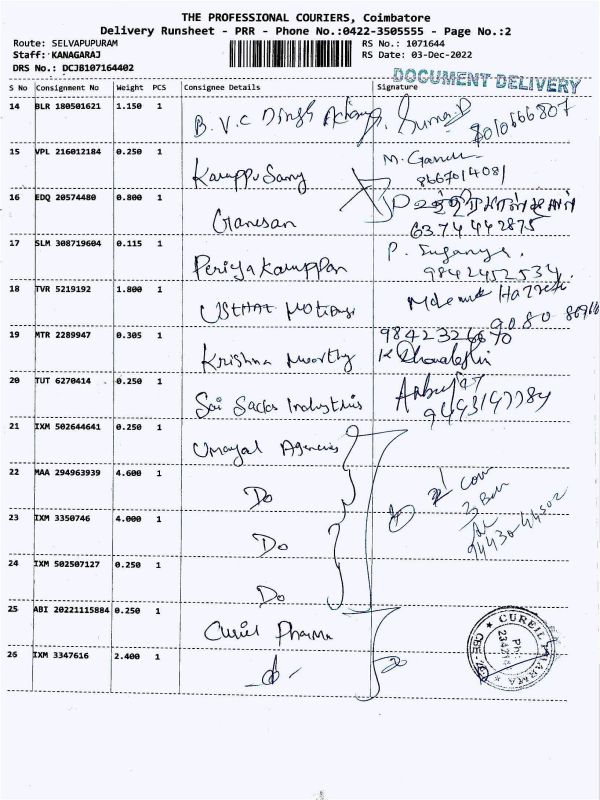 THE PROFESSIONAL COURIERS, Coimbatore
Delivery Runsheet - PRR - Phone No.:0422-3505555 - Page No.:2
Route: SELVAPUPURAM RS No.: 1071644
Staff: KANAGARAJ RS Date: 03-Dec-2022
DRS No.: DCJB107164402
DOCUMENT DELIVERY
S No Consignment No Weight PCS Consignee Details Signature
14 BLR 180501621 1.150 1 B.V.C 8010666807
15 VPL 216012184 0.250 1 Karuppu Samy M. 8667014081
16 EDQ 20574480 0.800 1 Ganesan 6374442875
17 SLM 308719604 0.115 1 Periya Karuppan P. Suganya. 9842452534
18 TVR 5219192 1.800 1 USTHAT Motions
19 MTR 2289947 0.305 1 Krishna Moorthy 9842326670
20 TUT 6270414 0.250 1 Sai Industries
21 IXM 502644641 0.250 1 Umayal Agencies
22 MAA 294963939 4.600 1 Do
23 IXM 3350746 4.000 1 Do 9443044502
24 IXM 502507127 0.250 1 Do
25 ABI 20221115884 0.250 1 Cureil Pharma
26 IXM 3347616 2.400 1
CUREIL PHARMA